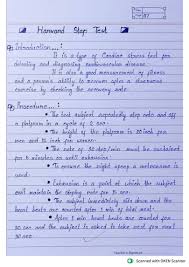 Harvard Step Test
Introduction :
It is a type of Cardiac stress test for
detecting and diagnosing cardiovascular disease.
It is also a good measurement of fitness
and a person's ability to recover after a strenuous
exercise by checking the recovery rate.
Procedure :
The test subject repeatedly step onto and off
a platform in a cycle of 2 sec.
The height of the platform is 20 inch for
men and 16 inch for women.
The rate of 30 steps/min must be sustained
for 5 minutes or until exhaustion.
To ensure the right speed a metronome is
used.
Exhaustion is a point at which the subject
cannot maintain the stepping rate for 15 sec.
The subject immediately sits down and the
heart beats are counted after 1 min of
After 1 min heart beats are counted for
30 sec and the subject is asked to take rest for next
30 sec.
Teacher's Signature
Scanned with OKEN Scanner